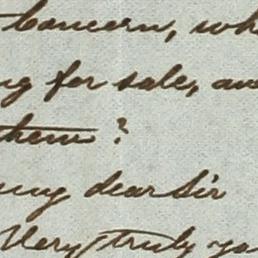 Concern, wh
ng for sale, an
them?
my dear Sir
Very truly yo